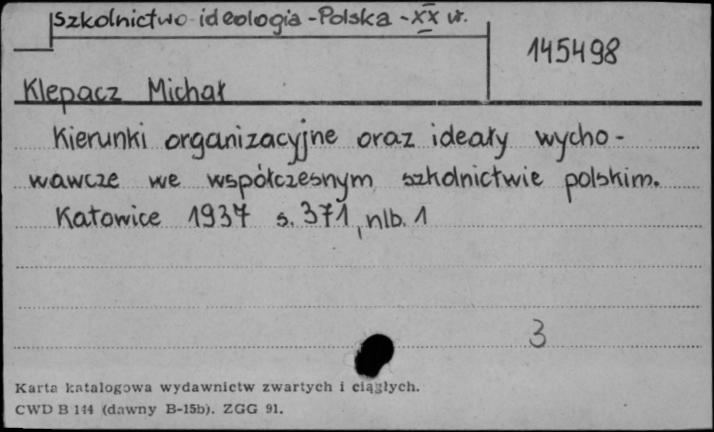 Szkolnictwo-ideologia-Polska-XX w.
145498
Klepacz Michał
Kierunki organizacyjne oraz ideały wycho-
wawcze we współczesnym szkolnictwie polskim.
Katowice 1937 s. 371, nlb. 1
3
Karta katalogowa wydawnictw zwartych i ciągłych.
CWD B 144 (dawny B-15b). ZGG 91.